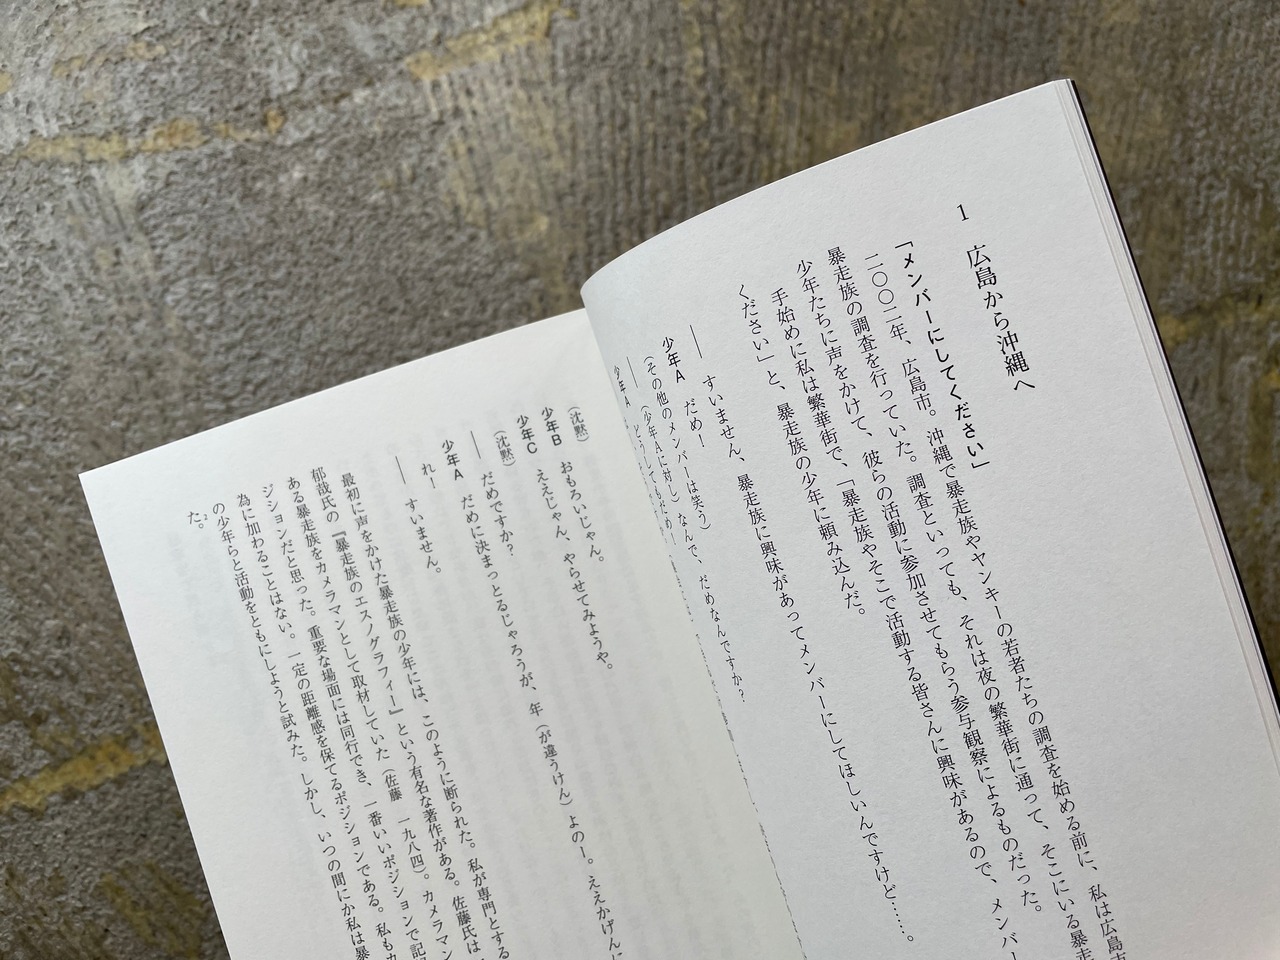 1　広島から沖縄へ
「メンバーにしてください」
二〇〇二年、広島市。沖縄で暴走族やヤンキーの若者たちの調査を始める前に、私は広島市
暴走族の調査を行っていた。調査といっても、それは夜の繁華街に通って、そこにいる暴走
少年たちに声をかけて、彼らの活動に参加させてもらう参与観察によるものだった。
手始めに私は繁華街で、「暴走族やそこで活動する皆さんに興味があるので、メンバー
ください」と、暴走族の少年に頼み込んだ。
――　すいません、暴走族に興味があってメンバーにしてほしいんですけど……。
少年A　だめー！
（その他のメンバーは笑う）
――　（少年Aに対し）なんで、だめなんですか？
少年A　どうしてもだめー！
（沈黙）
少年B　おもろいじゃん。
少年C　ええじゃん、やらせてみようや。
（沈黙）
――　だめですか？
少年A　だめに決まっとるじゃろうが、年（が違うけん）よのー。ええかげんに
れー
――　すいません。
最初に声をかけた暴走族の少年には、このように断られた。私が専門とする
郁哉氏の『暴走族のエスノグラフィー』という有名な著作がある。佐藤氏は
ある暴走族をカメラマンとして取材していた（佐藤　一九八四）。カメラマン
ジションだと思った。重要な場面には同行でき、一番いいポジションで記
為に加わることはない。一定の距離感を保てるポジションである。私もカ
の少年らと活動をともにしようと試みた。しかし、いつの間にか私は暴
た。2